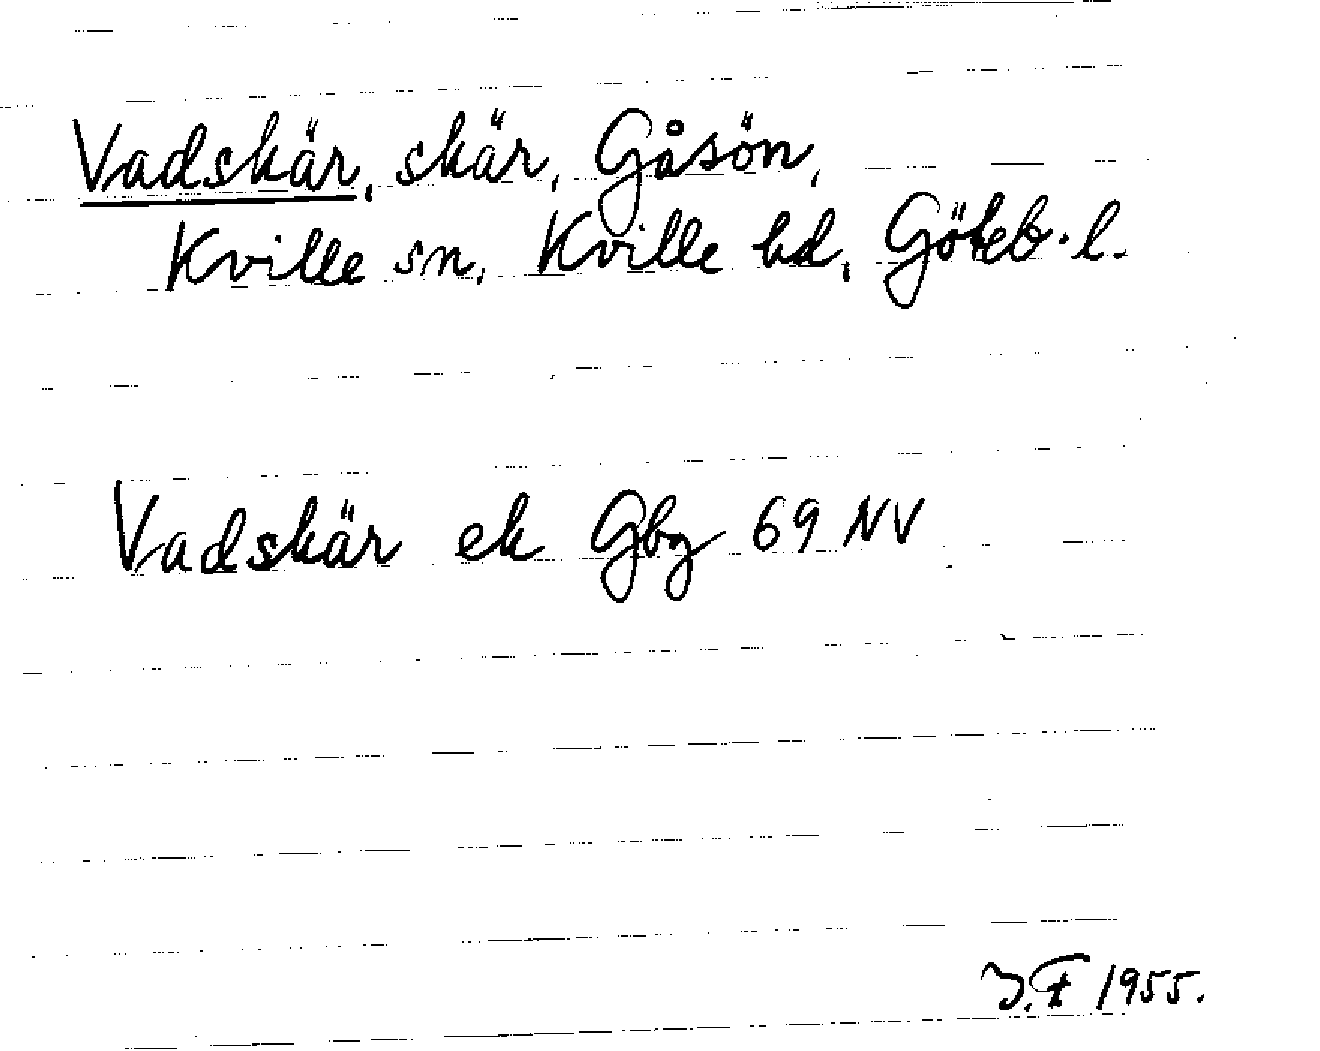 Vadskär, skär, Gåsön,
Kville sn, Kville hd, Göteb. l.
Vadskär ek Gbg 69 NV
J.F 1955.